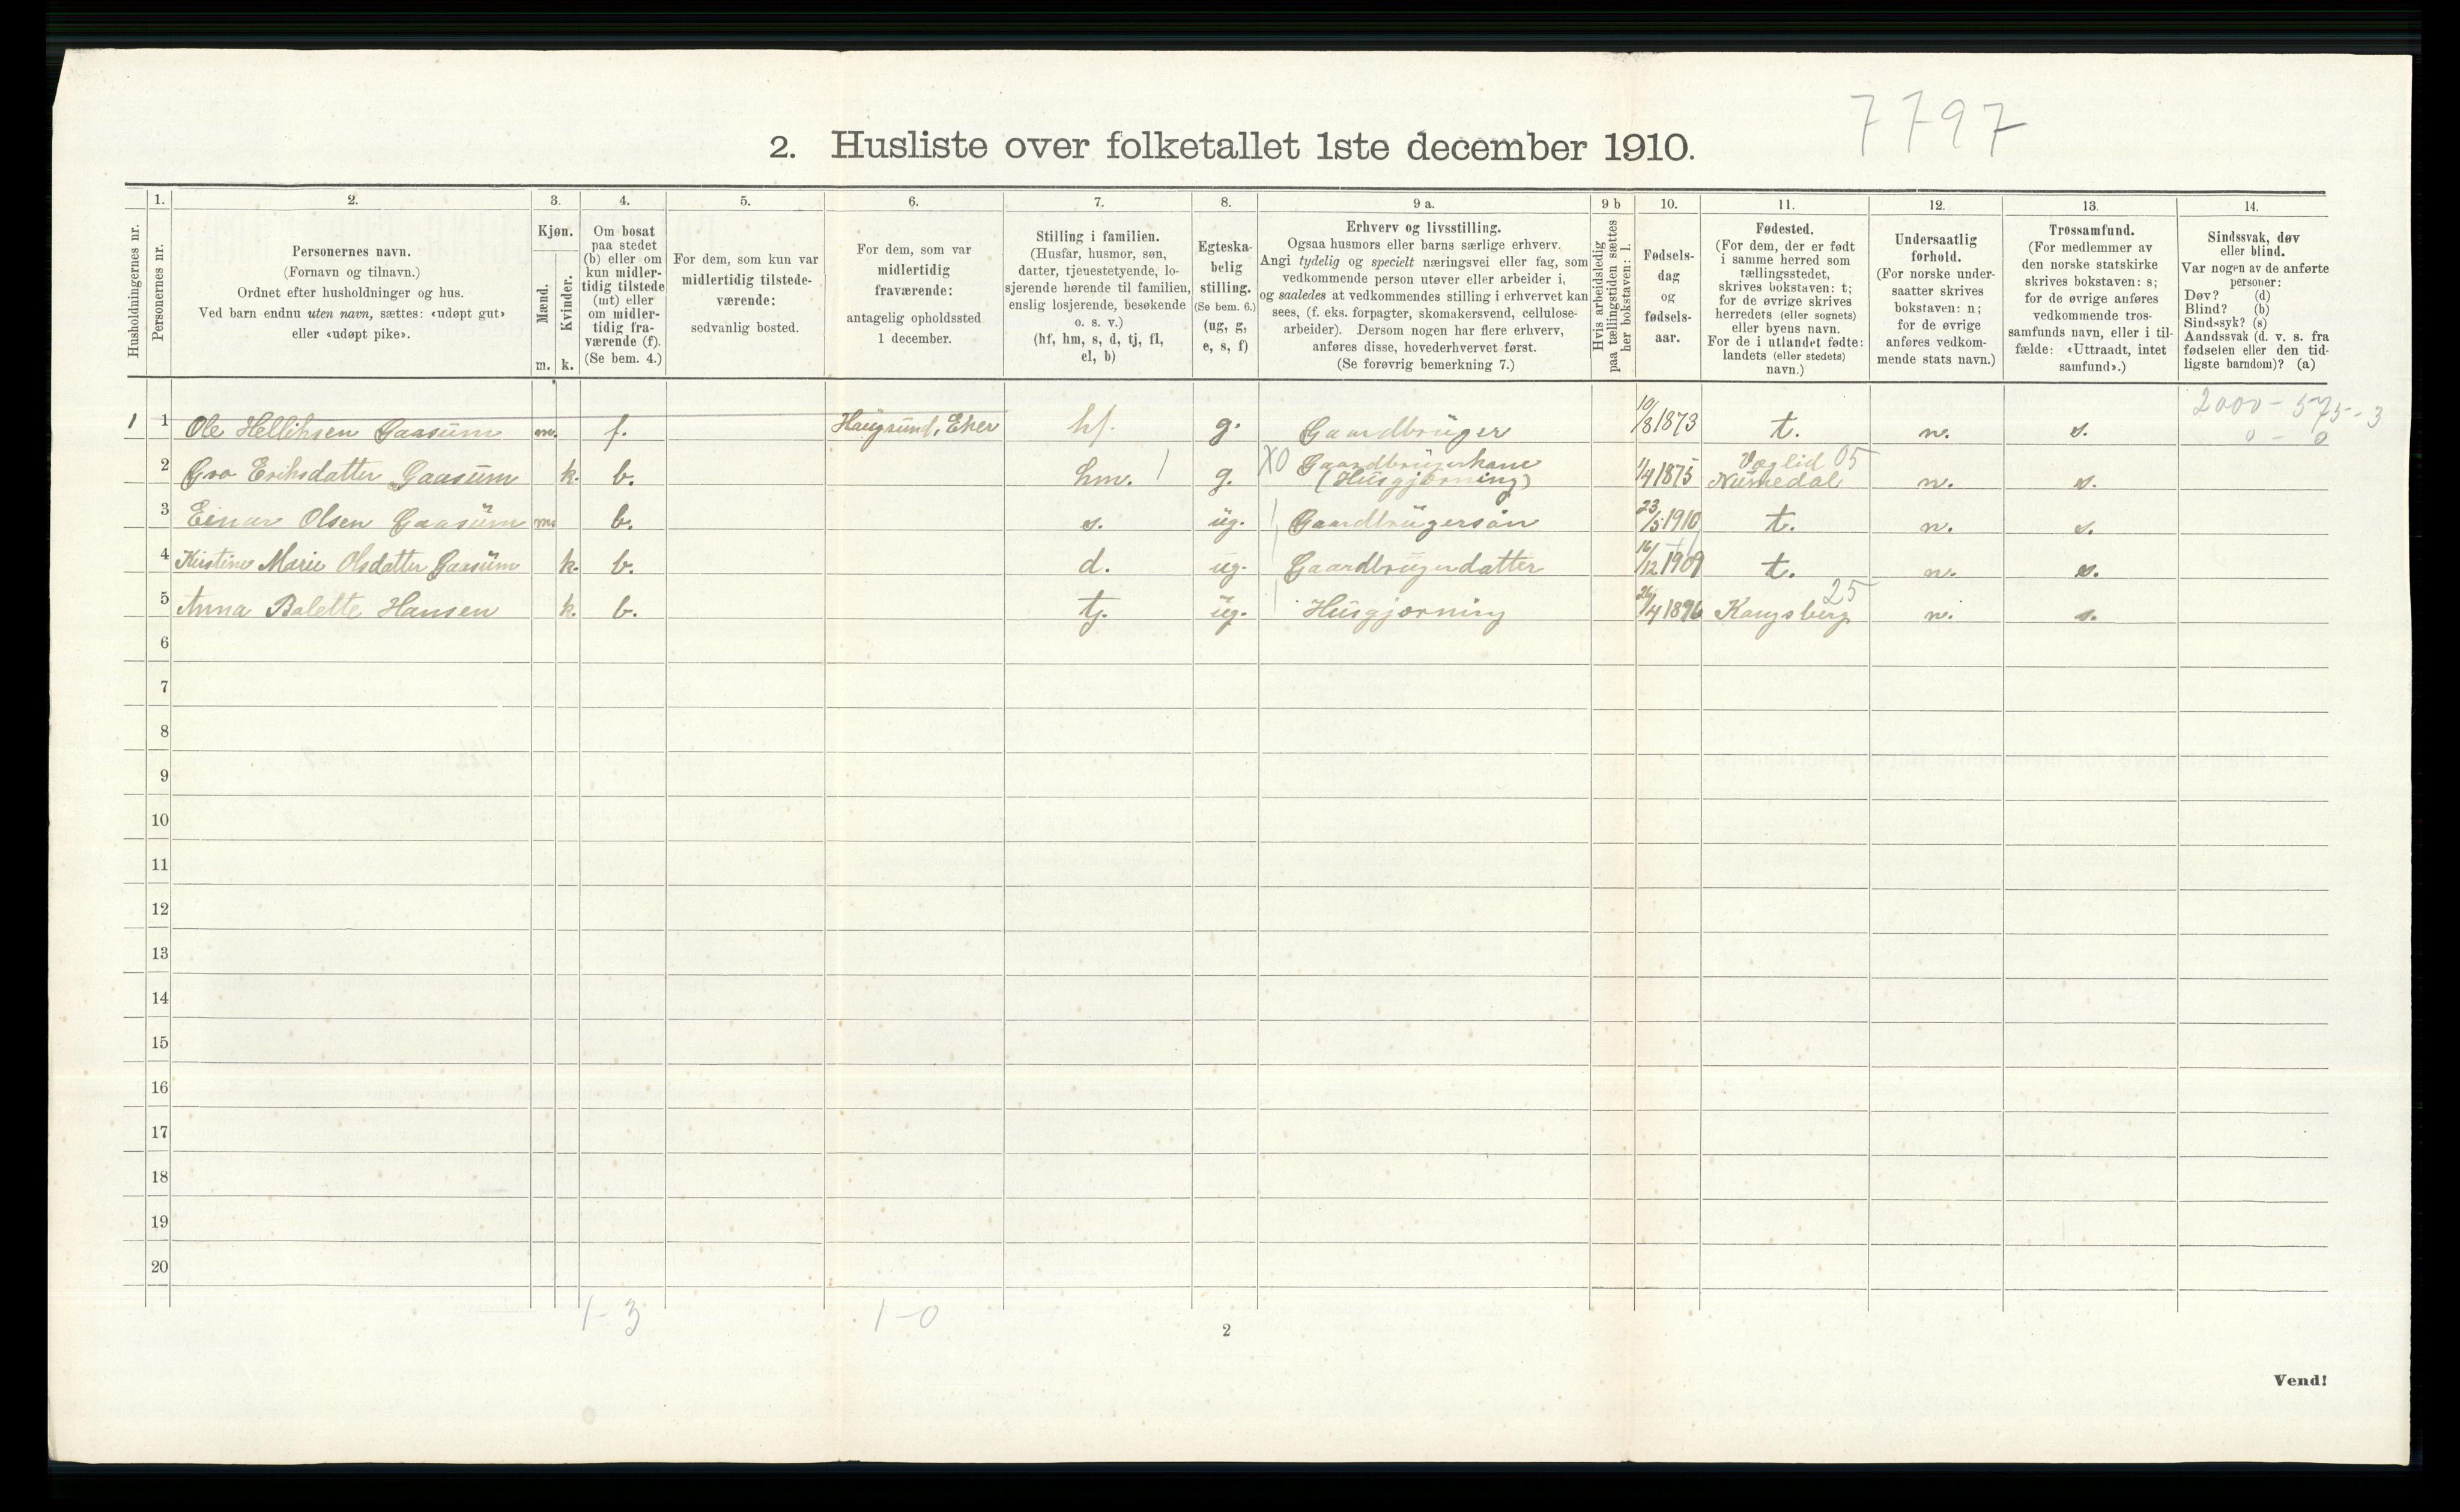 7797
2. Husliste over folketallet 1ste december 1910.
Husholdningernes nr.
1.
Personernes nr.
2.
Personernes navn.
(Fornavn og tilnavn.)
Ordnet efter husholdninger og hus.
Ved barn endnu uten navn, sættes: «udøpt gut»
eller «udøpt pike».
3.
Kjøn.
Mænd.
Kvinder.
m. k.
4.
Om bosat
paa stedet
(b) eller om
kun midler-
tidig tilstede
(mt) eller
om midler-
tidig fra-
værende (f).
(Se bem. 4.)
5.
For dem, som kun var
midlertidig tilstede-
værende:
sedvanlig bosted.
6.
For dem, som var
midlertidig
fraværende:
antagelig opholdssted
1 december.
7.
Stilling i familien.
(Husfar, husmor, søn,
datter, tjenestetyende, lo-
sjerende hørende til familien,
enslig losjerende, besøkende
o. s. v.)
(hf, hm, s, d, tj, fl,
el, b)
8.
Egteska-
belig
stilling.
(Se bem. 6.)
(ug, g,
e, s, f)
9 a.
Erhverv og livsstilling.
Ogsaa husmors eller barns særlige erhverv.
Angi tydelig og specielt næringsvei eller fag, som
vedkommende person utøver eller arbeider i,
og saaledes at vedkommendes stilling i erhvervet kan
sees, (f. eks. forpagter, skomakersvend, cellulose-
arbeider). Dersom nogen har flere erhverv,
anføres disse, hovederhvervet først.
(Se forøvrig bemerkning 7.)
9 b
Hvis arbeidsledig
paa tællingstiden sættes
her bokstaven: l.
10.
Fødsels-
dag
og
fødsels-
aar.
11.
Fødested.
(For dem, der er født
i samme herred som
tællingsstedet,
skrives bokstaven: t;
for de øvrige skrives
herredets (eller sognets)
eller byens navn.
For de i utlandet fødte:
landets (eller stedets)
navn.)
12.
Undersaatlig
forhold.
(For norske under-
saatter skrives
bokstaven: n;
for de øvrige
anføres vedkom-
mende stats navn.)
13.
Trossamfund.
(For medlemmer av
den norske statskirke
skrives bokstaven: s;
for de øvrige anføres
vedkommende tros-
samfunds navn, eller i til-
fælde: «Uttraadt, intet
samfund».)
14.
Sindssvak, døv
eller blind.
Var nogen av de anførte
personer:
Døv? (d)
Blind? (b)
Sindssyk? (s)
Aandssvak (d. v. s. fra
fødselen eller den tid-
ligste barndom)? (a)
2000 - 575 - 3
0 - 0
1 1 Ole Helliksen Gaasum m. f. Haugsund, Eker hf. g. Gaardbruger 10/8 1873 t. n. s.
2 Gro Eriksdatter Gaasum k. b. hm. 1 g. X0 Gaardbrugerkone (Husgjørning) 1/4 1875 Væglid 05 Numedal n. s.
3 Einar Olsen Gaasum m. b. s. ug. Gaardbrugersøn 23/5 1910 t. n. s.
4 Kirstine Marie Olsdatter Gaasum k. b. d. ug. Gaardbrugerdatter 16/12 1909 t. n. s.
5 Anna Balette Hansen k. b. tj. ug. Husgjørning 26/4 1896 Kongsberg 25 n. s.
6
7
8
9
10
11
12
13
14
15
16
17
18
19
20
1-3 1-0
2
Vend!